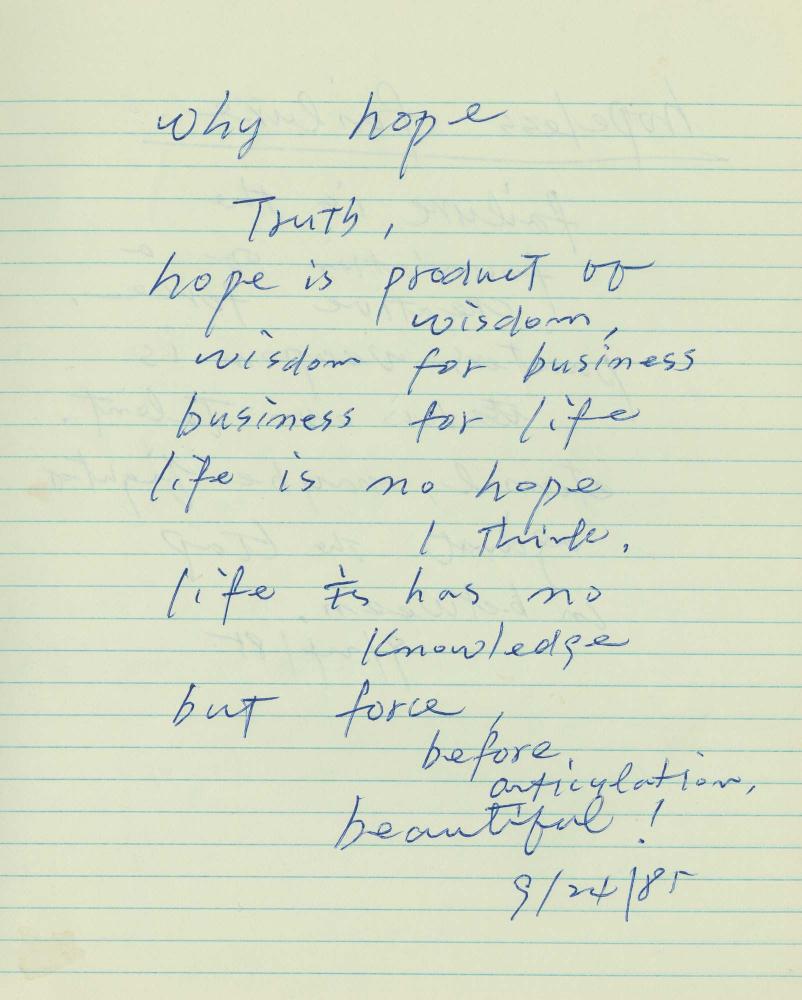 why hope
Truth,
hope is product of
wisdom,
wisdom for business
business for life
life is no hope
I think.
life is has no
knowledge
but force,
before
articulation,
beautiful!
9/24/85